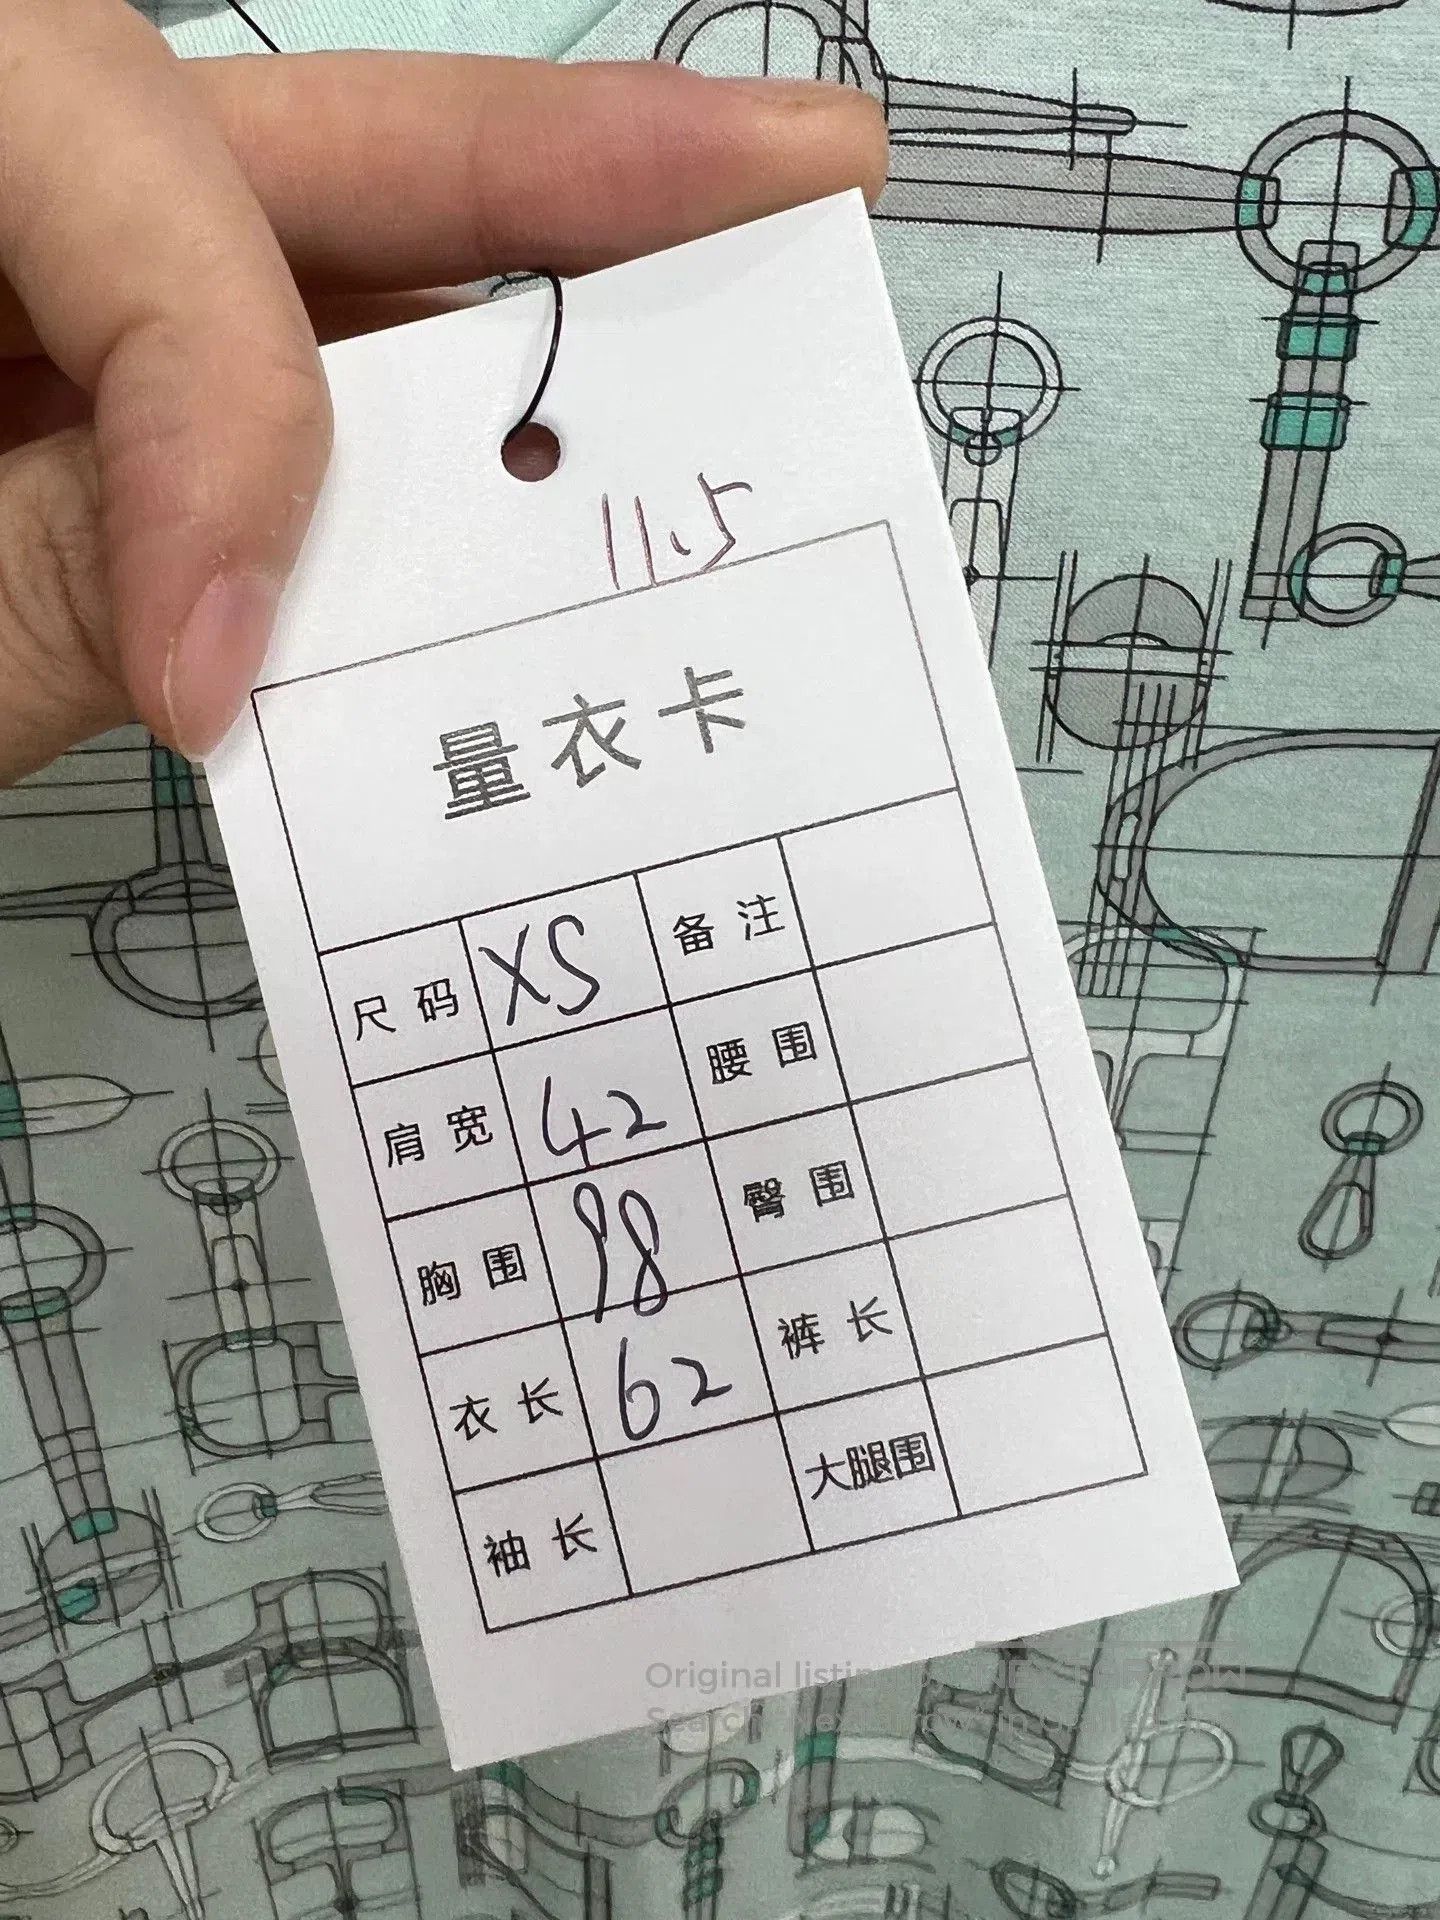 11.5
量衣卡
尺码 XS 备注
肩宽 42 腰围
胸围 98 臀围
衣长 62 裤长
袖长 大腿围
Original listing
Search